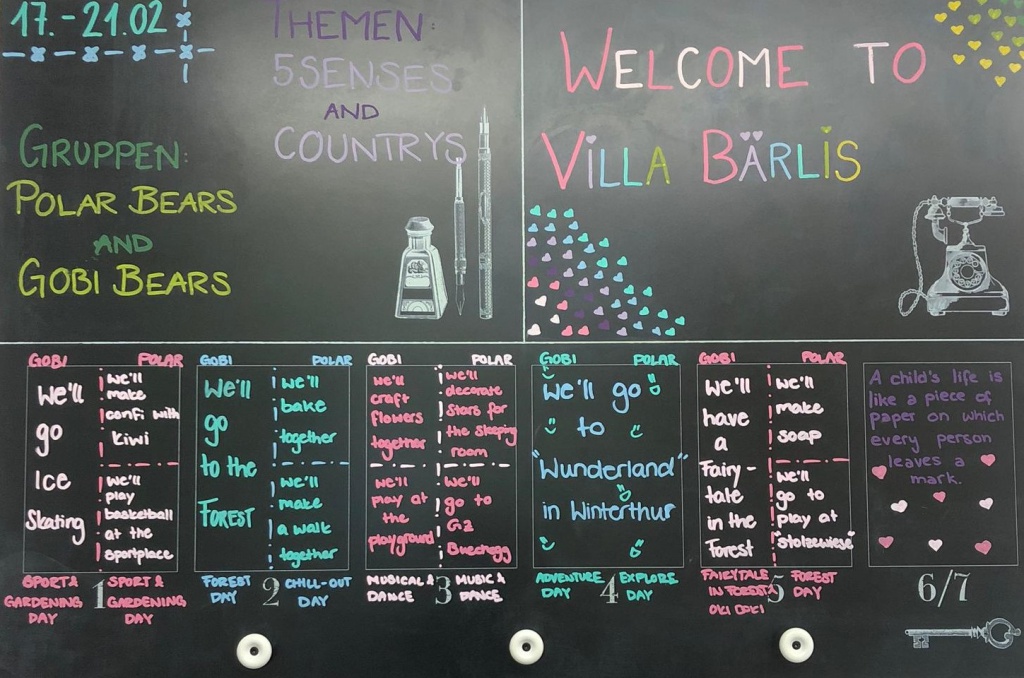 17.-21.02
THEMEN:
5 SENSES
AND
COUNTRYS
GRUPPEN:
POLAR BEARS
AND
GOBI BEARS
WELCOME TO
VILLA BÄRLIS
GOBI
We'll
go
Ice
Skating
SPORT &
GARDENING
DAY
1
POLAR
We'll
make
confi with
kiwi
We'll
play
basketball
at the
sportplace
SPORT &
GARDENING
DAY
GOBI
We'll
go
to the
FOREST
FOREST
DAY
2
POLAR
We'll
bake
together
We'll
make
a walk
together
CHILL-OUT
DAY
GOBI
We'll
craft
flowers
together
We'll
play at
the
playground
MUSICAL &
DANCE
3
POLAR
We'll
decorate
Stars for
the sleeping
room
We'll
go to
GZ
Buchegg
MUSIC &
DANCE
GOBI POLAR
We'll go
to
"Wunderland"
in Winterthur
ADVENTURE
DAY
4
EXPLORE
DAY
GOBI
We'll
have
a
Fairy-
tale
in the
Forest
FAIRYTALE
IN FOREST &
OKI DOKI
5
POLAR
We'll
make
soap
We'll
go to
play at
"stolzewiese"
FOREST
DAY
A child's life is
like a piece of
paper on which
every person
leaves a
mark.
6/7